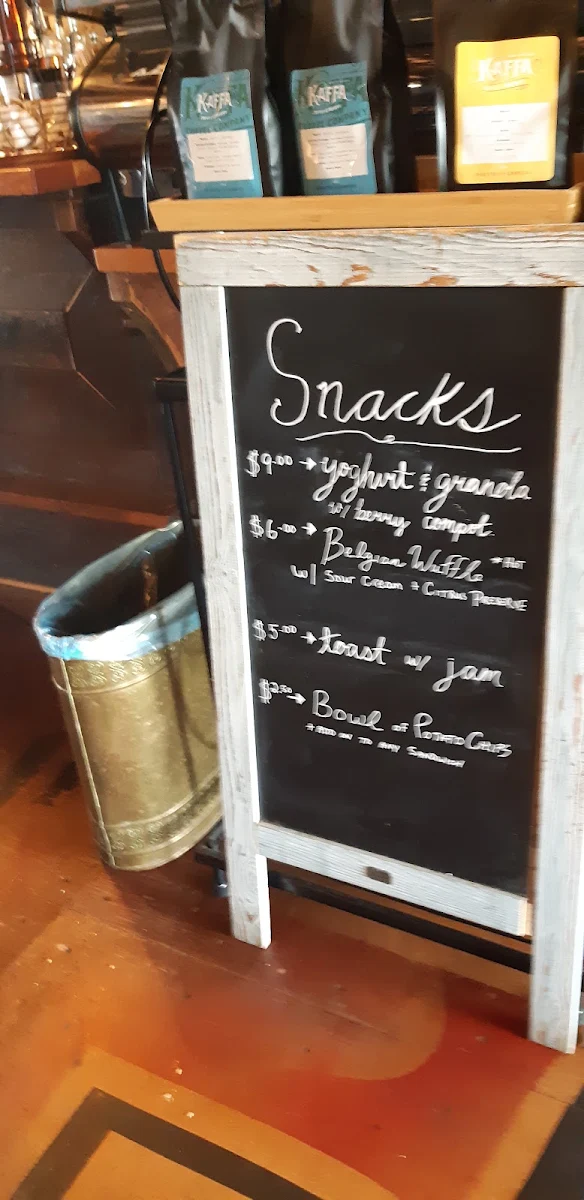 KAFFA
KAFFA
KAFFA
Snacks
$9.00 → yoghurt & granola
w/ berry compot
$6.00 → Belgian Waffle *Hot
w/ Sour Cream + Citrus Preserve
$5.00 → toast w/ jam
$2.50 → Bowl of Potato Chips
* Add on to any Sandwich